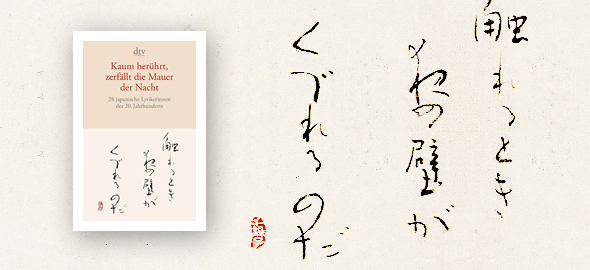 dtv
Kaum berührt,
zerfällt die Mauer
der Nacht
28 japanische Lyrikerinnen
des 20. Jahrhunderts
触れるとき
夜の壁が
くづれるのだ
触れるとき
夜の壁が
くづれるのだ